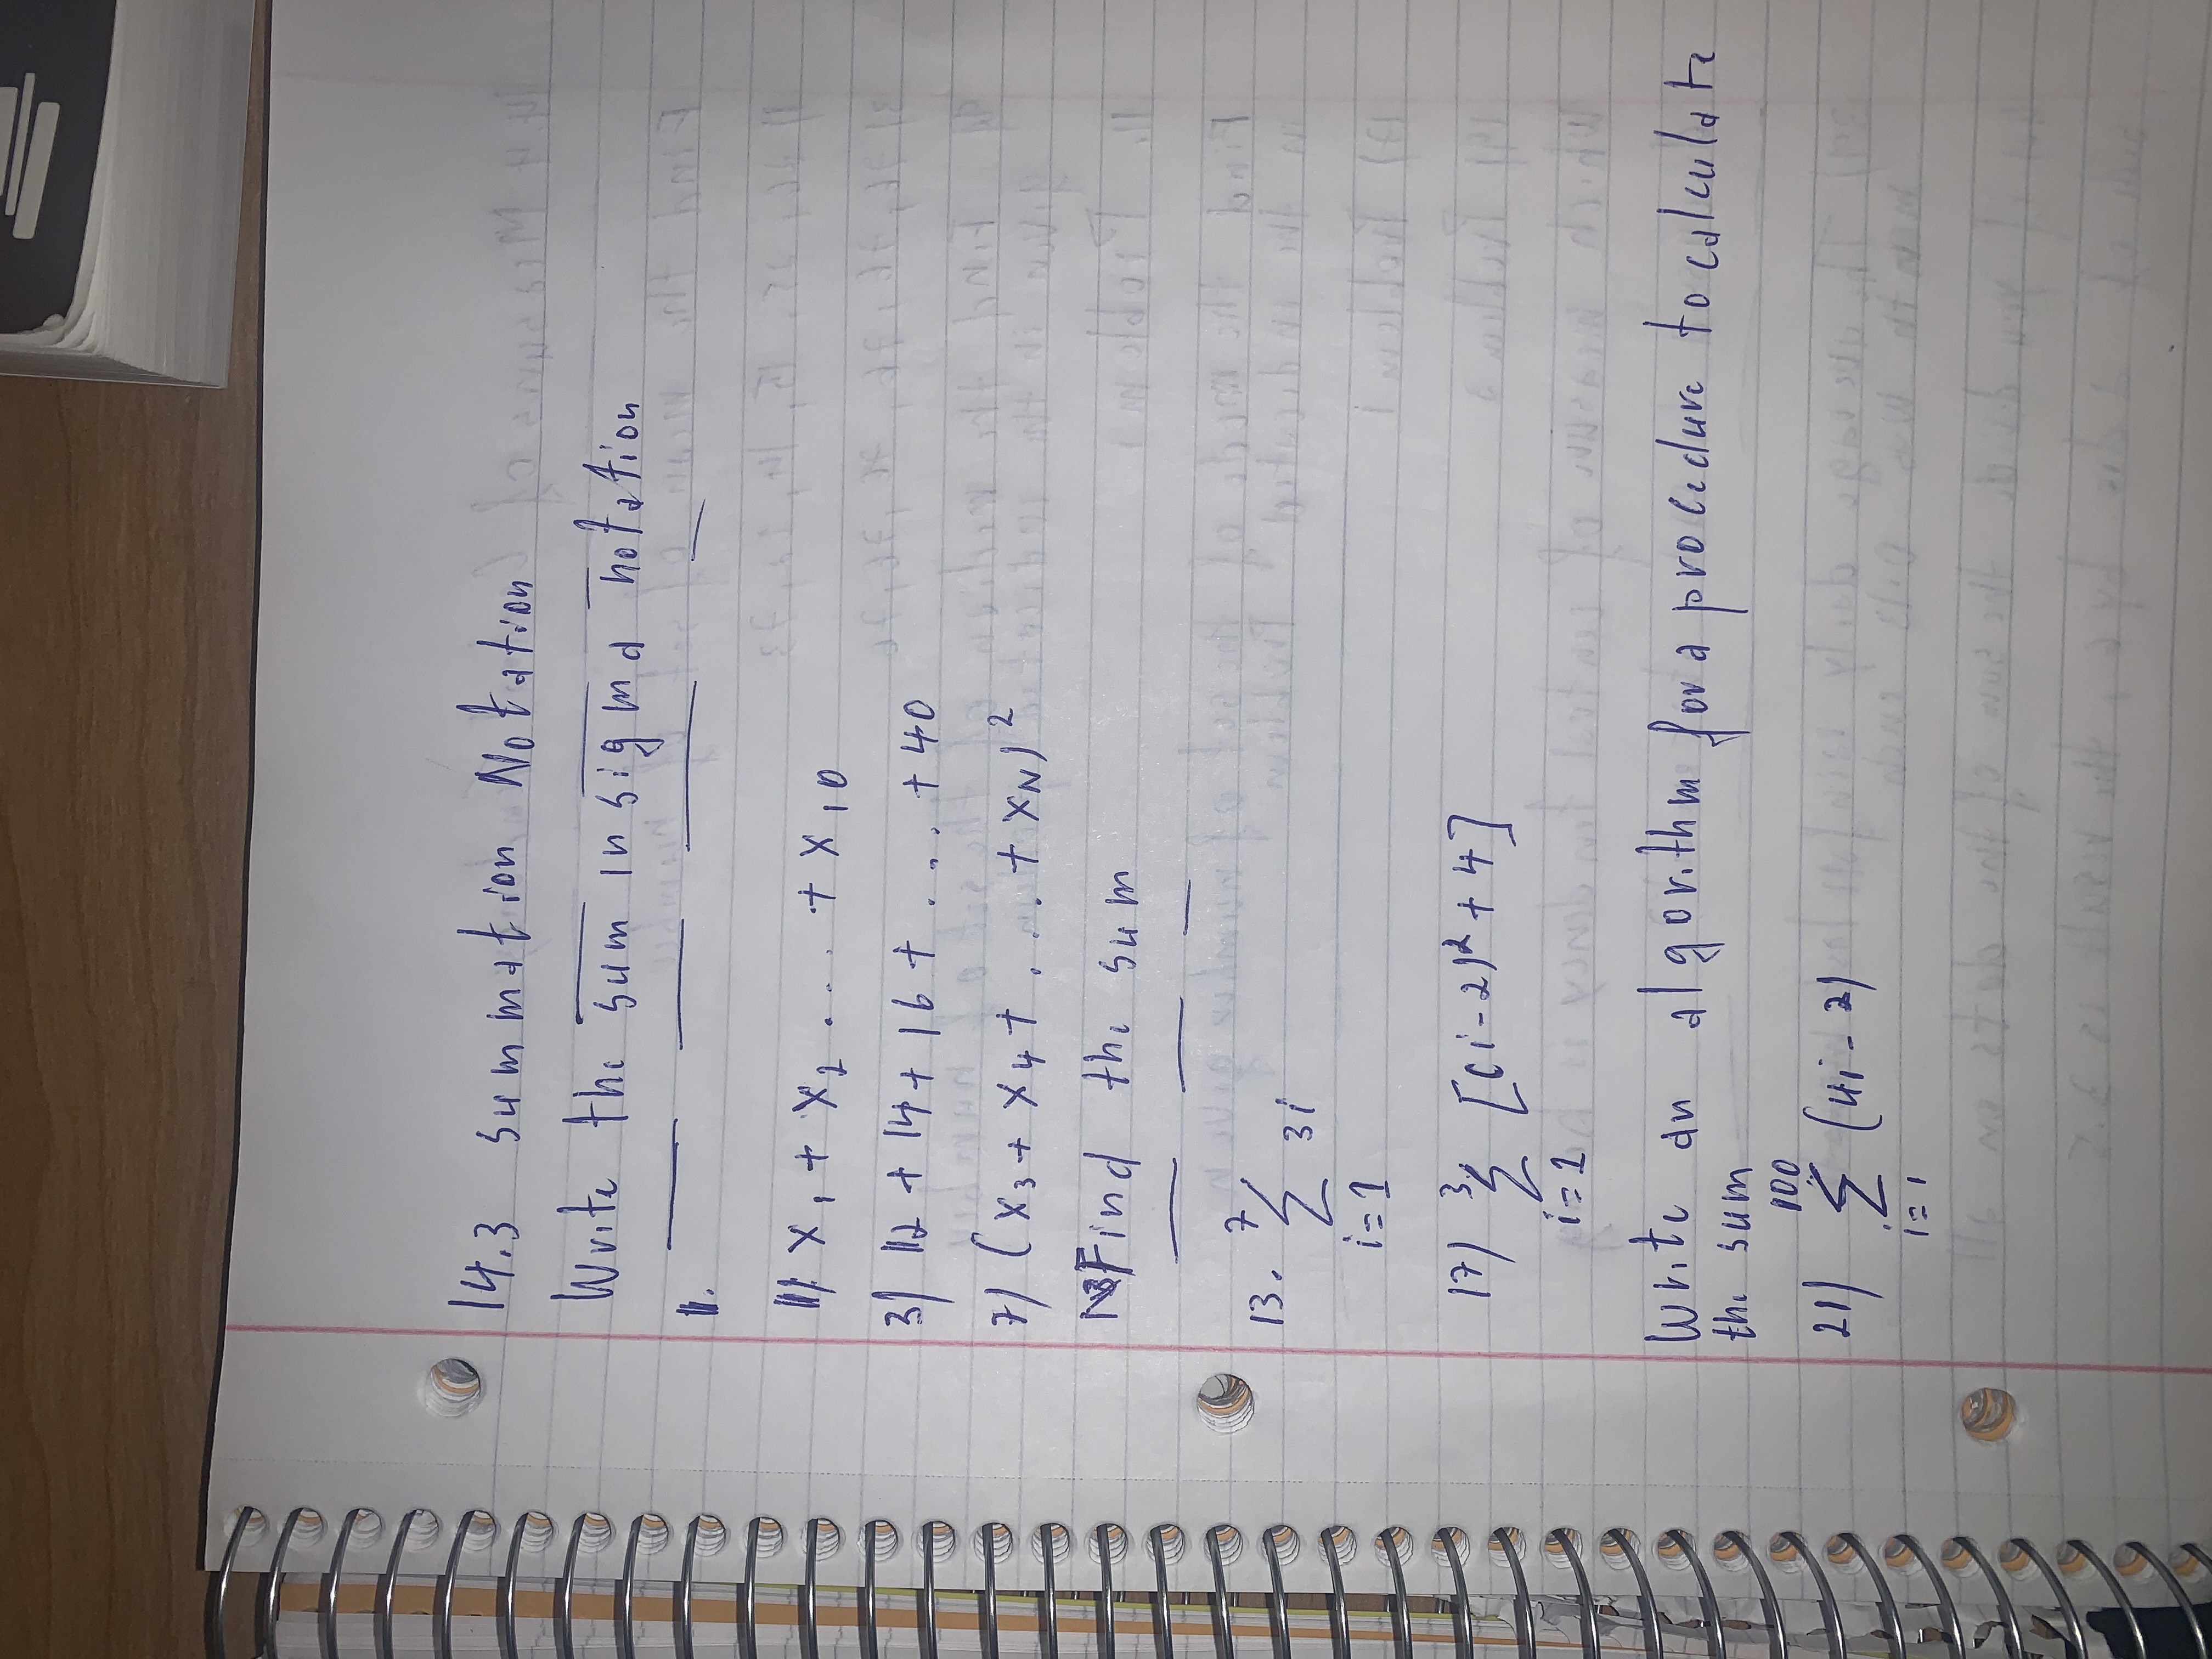 14.3 Summation Notation
Write the sum in sigma notation
1.
1) x₁ + x₂ .... + x₁₀
3) 12 + 14 + 16 + .... + 40
7) (x₃ + x₄ + ... + xN)²
Find the sum
7
13. Σ 3i
i=1
3
17) Σ [(i-2)² + 4]
i=1
Write an algorithm for a procedure to calculate
the sum
100
21) Σ (4i-2)
i=1